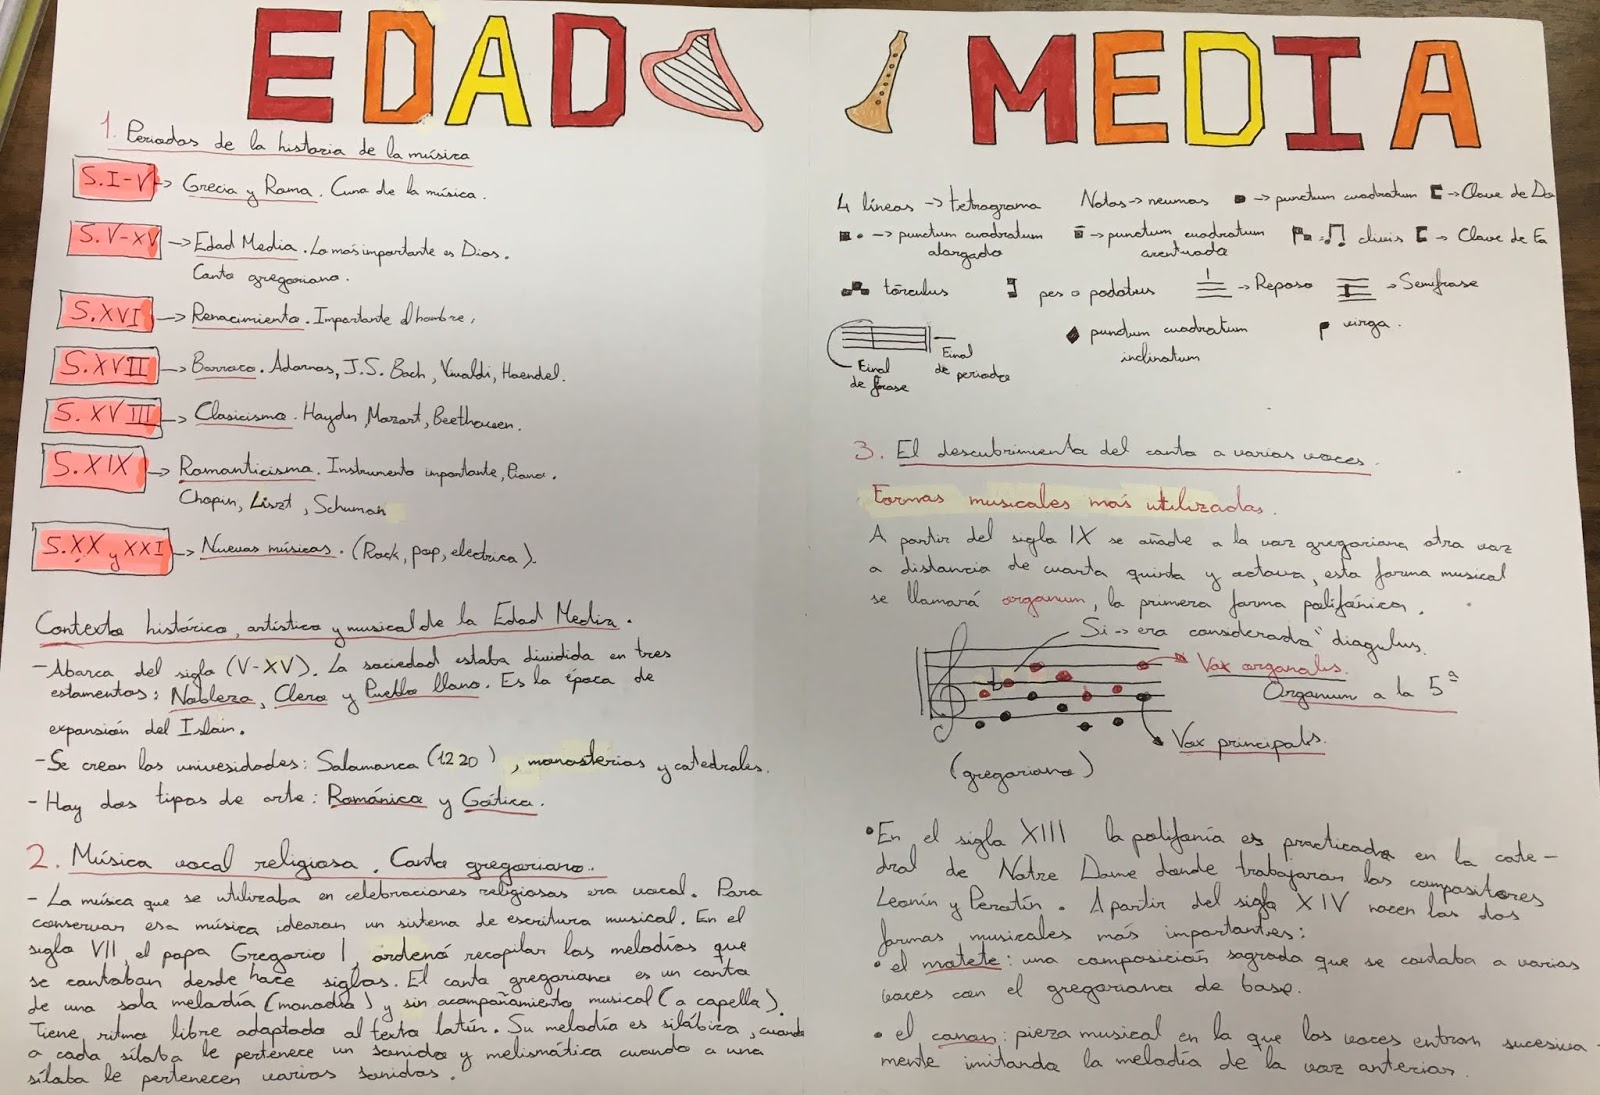 EDAD MEDIA
1. Periodos de la historia de la música
S.I-V -> Grecia y Roma. Cuna de la música.
S.V-XV -> Edad Media. Lo más importante es Dios.
Canto gregoriano.
S.XVI -> Renacimiento. Importante el hombre.
S.XVII -> Barroco. Adornos, J.S. Bach, Vivaldi, Haendel.
S.XVIII -> Clasicismo. Haydn, Mozart, Beethoven.
S.XIX -> Romanticismo. Instrumento importante, Piano.
Chopin, Liszt, Schuman
S.XX y XXI -> Nuevas músicas. (Rock, pop, electrica).
Contexto histórico, artístico y musical de la Edad Media.
- Abarca del siglo (V-XV). La sociedad estaba dividida en tres
estamentos: Nobleza, Clero y Pueblo llano. Es la época de
expansión del Islam.
- Se crean las univesidades: Salamanca (1220), monasterios y catedrales.
- Hay dos tipos de arte: Románico y Gótico.
2. Música vocal religiosa. Canto gregoriano.
- La música que se utilizaba en celebraciones religiosas era vocal. Para
conservar esa música idearon un sistema de escritura musical. En el
siglo VII, el papa Gregorio I, ordenó recopilar las melodías que
se cantaban desde hace siglos. El canto gregoriano es un canto
de una sola melodía (monodia) y sin acompañamiento musical (a capella).
Tiene ritmo libre adaptado al texto latín. Su melodía es silábica, cuando
a cada sílaba le pertenece un sonido y melismática cuando a una
sílaba le pertenecen varios sonidos.
4 líneas -> tetragrama Notas -> neumas -> punctum cuadratum -> Clave de Do
-> punctum cuadratum alargado -> punctum cuadratum acentuado clivis -> Clave de Fa
tórculus pes o podatus -> Reposo -> Semifrase
punctum cuadratum inclinatum virga.
Final de frase
Final de periodo
3. El descubrimiento del canto a varias voces.
Formas musicales más utilizadas.
A partir del siglo IX se añade a la voz gregoriana otra voz
a distancia de cuarta quinta y octava, esta forma musical
se llamará organum, la primera forma polifónica.
Si -> era considerado "diagulus.
Vox organalis.
Organum a la 5ª
Vox principalis.
(gregoriano)
• En el siglo XIII la polifonía es practicada en la cate-
dral de Notre Dame donde trabajaran los compositores
Leonín y Perotín. A partir del siglo XIV nacen las dos
formas musicales más importantes:
• el motete: una composición sagrada que se cantaba a varias
voces con el gregoriano de base.
• el canon: pieza musical en la que las voces entran sucesiva-
mente imitando la melodía de la voz anterior.